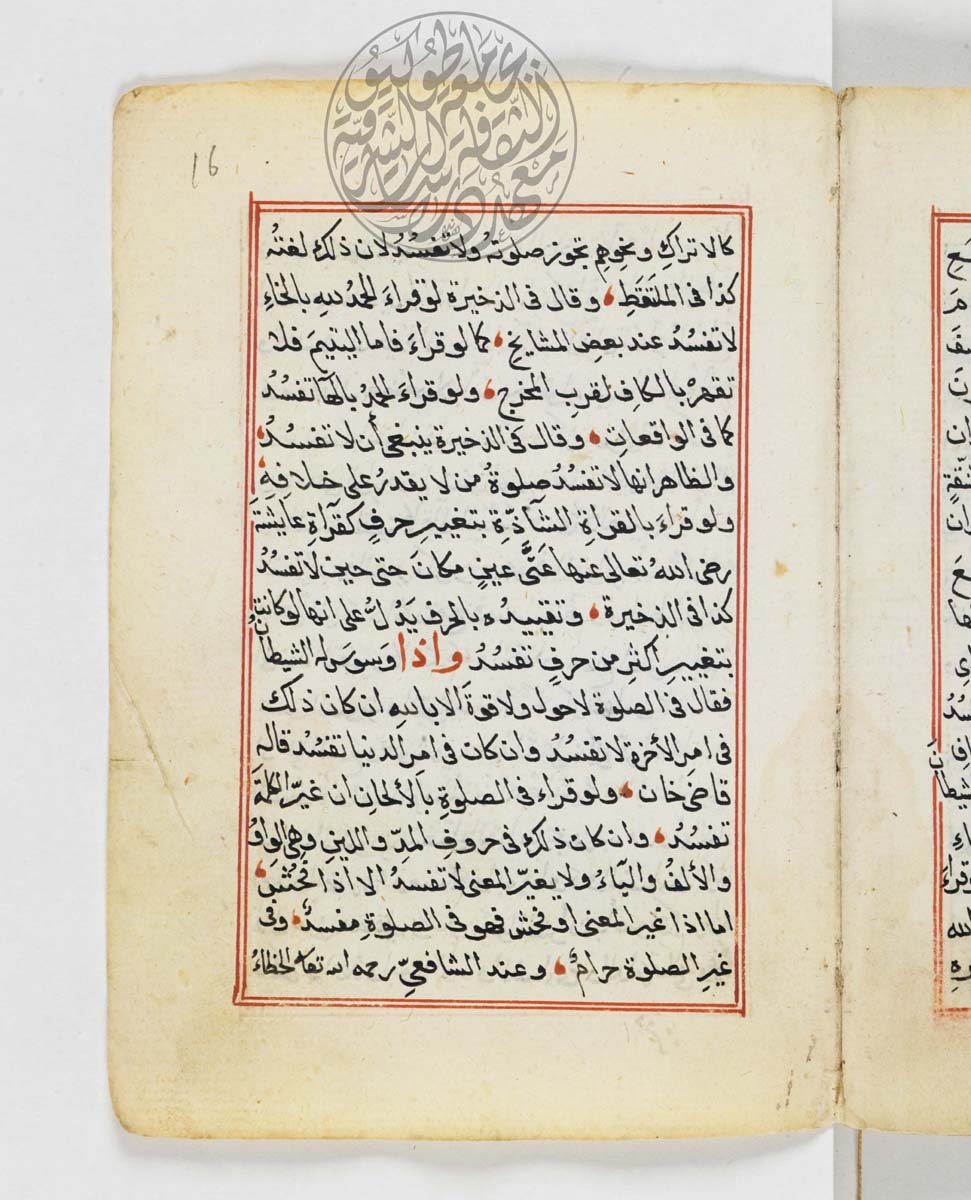 16
كالاتراكِ ونحوِهِم تجوز صلوتهُ ولا تفسُدُ لان ذلك لغتهُ
كذا فى الملتَقَطِ، وقال فى الذخيرة لو قراءَ الحمدُ للهِ بالخاءِ
لا تفسُدُ عند بعضِ المشايخِ، كما لو قراءَ فاما اليتيمَ فلا
تقهرْ بالكافِ لقربِ المخرجِ، ولو قراءَ الحمدُ بالهآ تفسُدُ
كما فى الواقعاتِ، وقال فى الذخيرة ينبغى أن لا تفسُدُ،
والظاهر انها لا تفسُدُ صلوةُ من لا يقدرُ على خلافِهِ،
ولو قراءَ بالقراةِ الشآذّةِ بتغييرِ حرفٍ كقرآةِ عايشةَ
رضى اللهُ تعالى عنها عَتَّى عينٍ مكانَ حتى حين لا تفسُدُ
كذا فى الذخيرة، وتقييدُه بالحرف يَدُلُّ على انها لو كانت
بتغييرِ اكثرِ من حرفٍ تفسُدُ واذا وَسوسَ له الشيطانُ
فقال فى الصلوة لا حول ولا قوةَ الا باللهِ ان كان ذلك
فى امرِ الأخرةِ لا تفسُدُ وان كان فى امرِ الدنيا تفسُدُ قاله
قاضى خان، ولو قراء فى الصلوةِ بالألحانِ ان غيّر الكلمةَ
تفسُدُ، وان كان ذلك فى حروفِ المدِّ واللينِ وهى الواوُ
والألفُ واليآءُ ولا يغيّر المعنى لا تفسدُ الا اذا فحُشَ،
اما اذا غير المعنى او فحش فهو فى الصلوةِ مفسدٌ، وفى
غيرِ الصلوة حرامٌ، وعند الشافعىِّ رحمه الله تعالى الخطاءُ